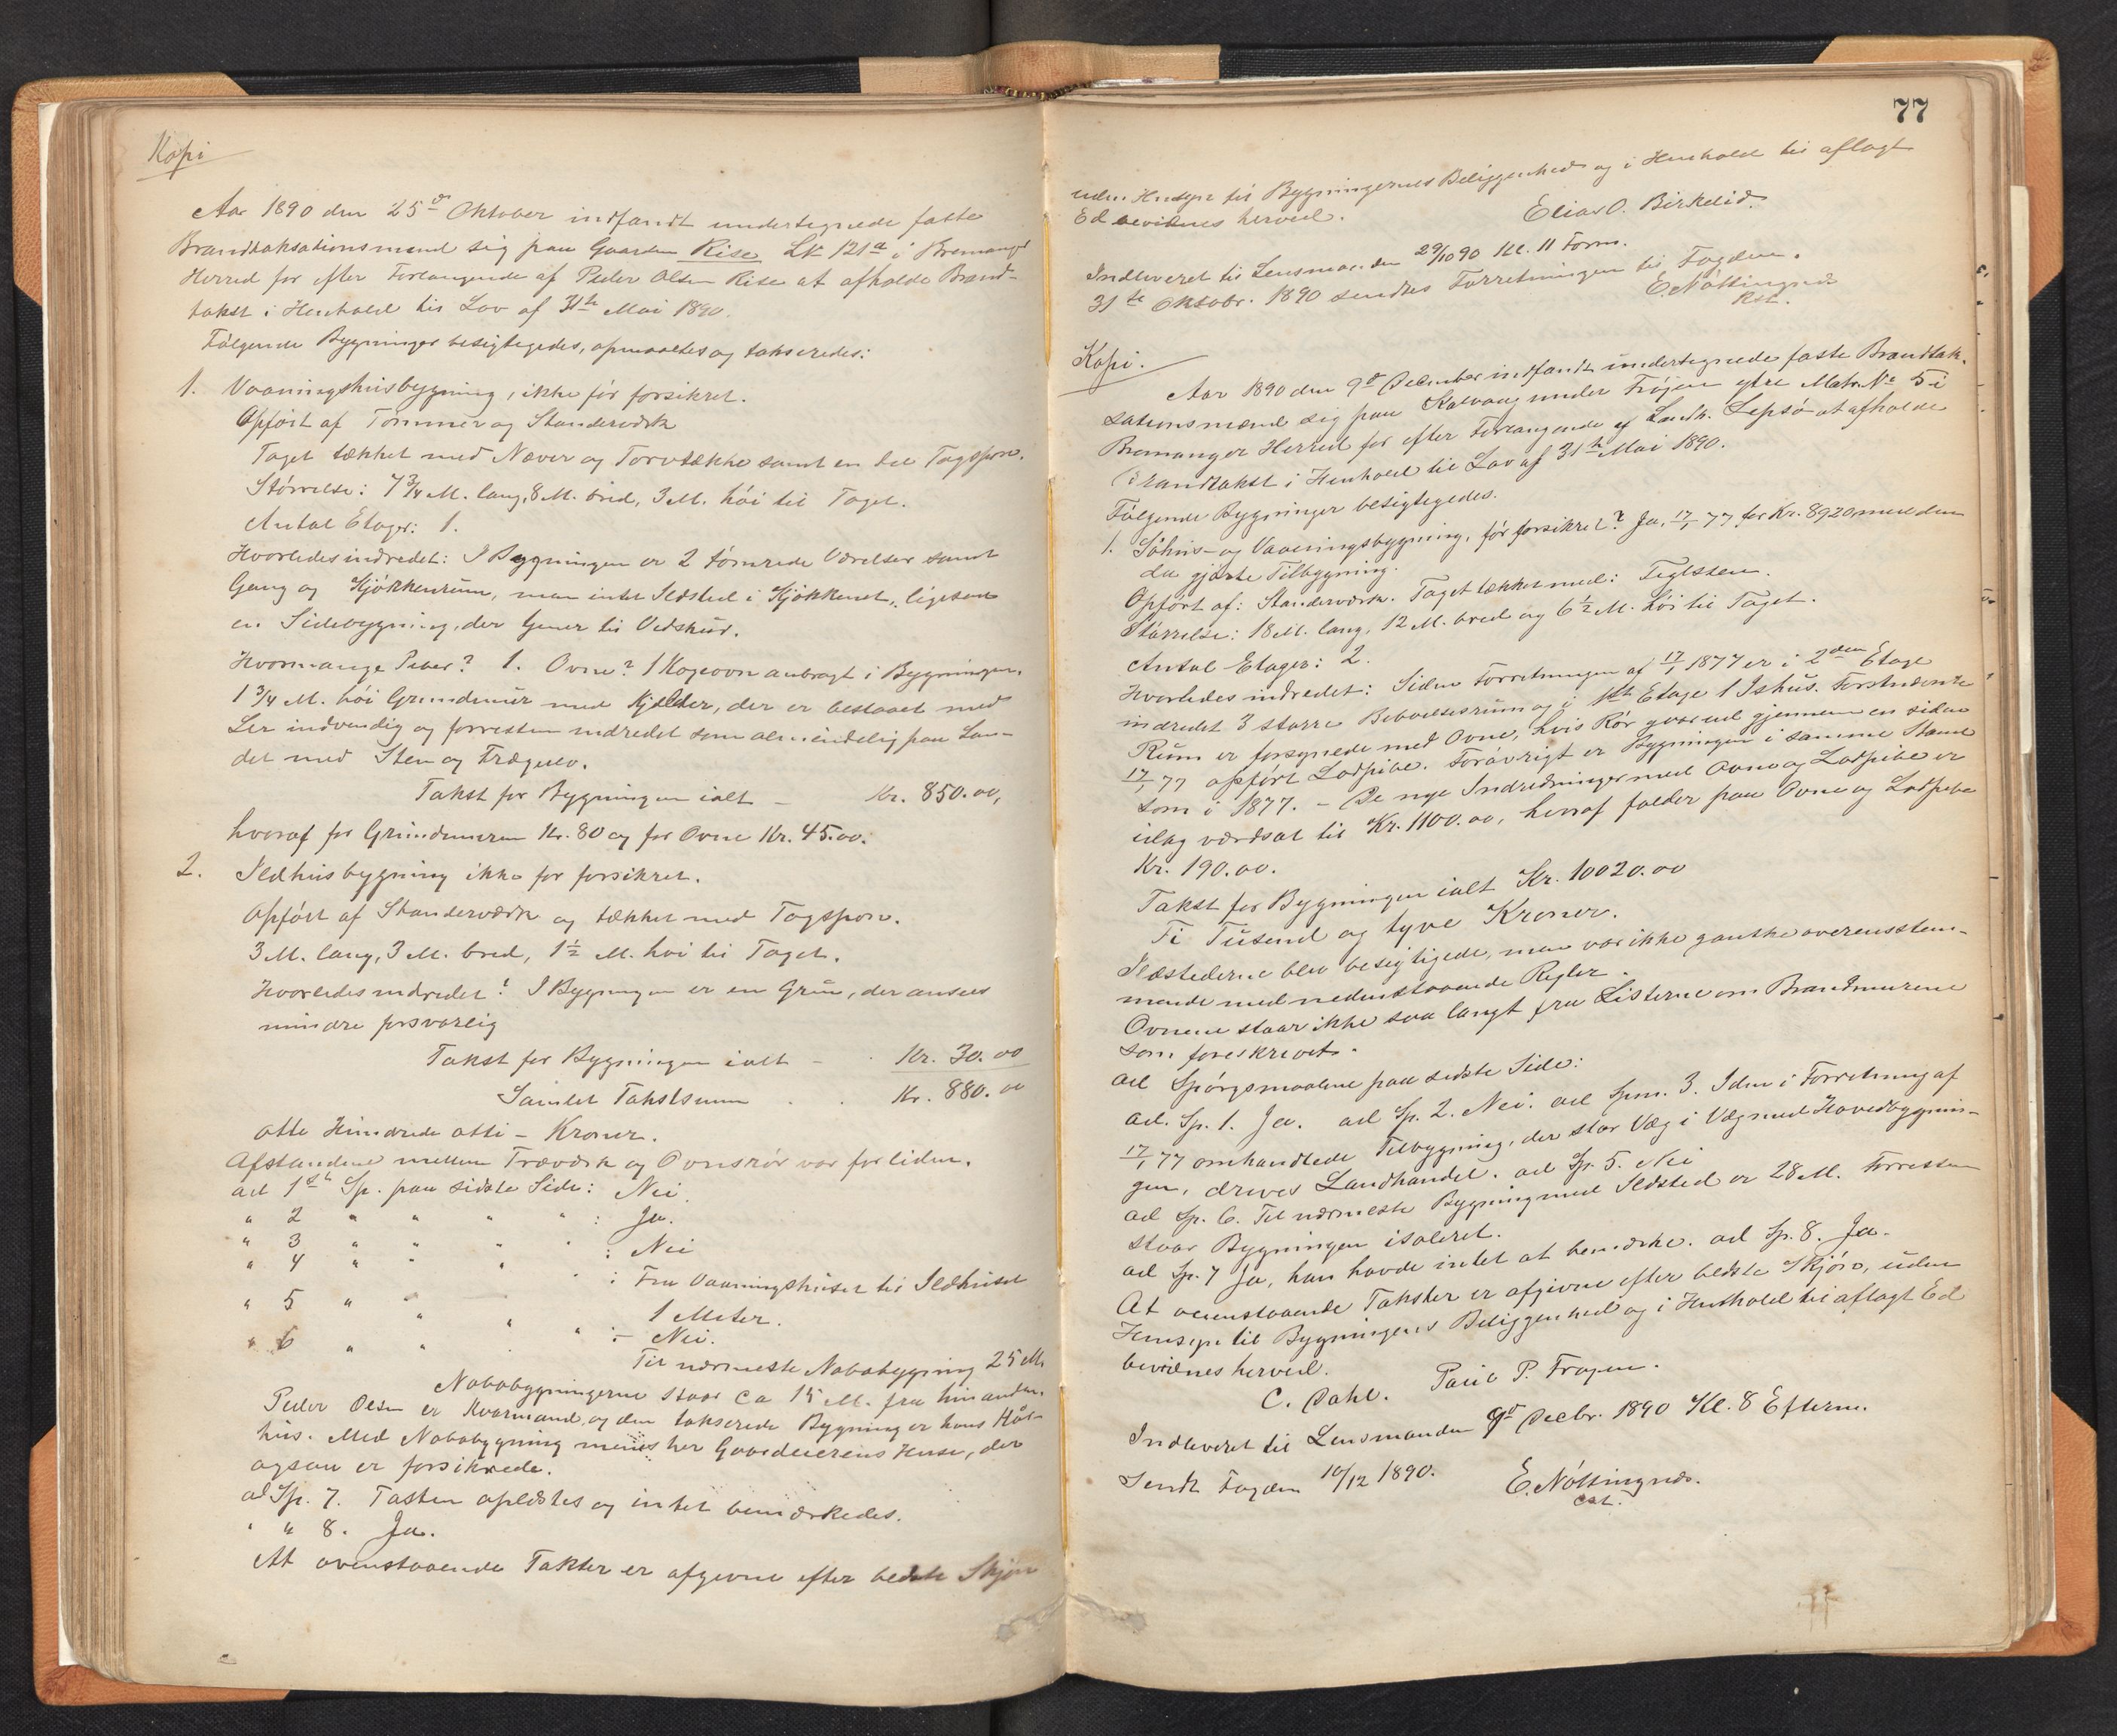 Kopi
Aar 1890 den 25de Oktober indfandt undertegnede faste
Brandtaksationsmænd sig paa Gaarden Rise Lb 121a i Bremanger
Herred for efter Forlangende af Peder Olsen Rise at afholde Brand-
takst i Henhold til Lov af 31te Mai 1890.
Følgende Bygninger besigtigedes, opmaaltes og takseredes:
1. Vaaningshusbygning, ikke før forsikret.
Opført af Tømmer og Standerværk
Taget tækket med Næver og Torvtække samt en Del Tagspon.
Størrelse: 7 3/4 M. lang, 8 M. bred, 3 M. høi til Taget.
Antal Etager: 1.
Hvorledes indredet: I Bygningen er 2 tømrede Værelser samt
Gang og Kjøkkenrum, men intet Ildsted i Kjøkkenet, ligesom
en Sidebygning, der tjener til Vedskur.
Hvormange Piber? 1. Ovne? 1 Kogeovn anbragt i Bygningen.
1 3/4 M. høi Grundmur med Kjelder, der er bestaaet med
Ler indvendig og forresten indredet som almindelig paa Lan-
det med Sten og Trægulv.
Takst for Bygningen ialt - Kr. 850.00,
hvoraf for Grundmuren Kr. 80 og for Ovne Kr. 45.00.
2. Ildhusbygning ikke før forsikret.
Opført af Standerværk og tækket med Tagspon.
3 M. lang, 3 M. bred, 1 1/2 M. høi til Taget.
Hvorledes indredet? I Bygningen er en Grue, der ansees
mindre forsvarlig
Takst for Bygningen ialt - . Kr. 30.00
Samlet Takstsum . . Kr. 880.00
otte Hundrede otti - Kroner.
Afstandene mellem Træværk og Ovnsrør var for liden.
ad 1ste Sp. paa sidste Side: Nei.
" 2 " " " " : Ja.
" 3 " " " " : Nei
" 4 " " " " : Fra Vaaningshuset til Ildhuset
1 Meter.
" 5 " " " " :- Nei.
" 6 " " " Til nærmeste Nabobygning 25 M.
Nabobygningerne staar ca 15 M. fra hinanden.
Peder Olsen er Kvarmand, og den takserede Bygning er hans
hus. Med Nabobygning menes her Gaardeierens Huse, der
ogsaa er forsikrede.
ad Sp. 7. Taksten oplæstes og intet bemærkedes.
" " 8. Ja.
At ovenstaaende Takster er afgivne efter bedste Skjøn
77
uden Hensyn til Bygningernes Beliggenhed og i Henhold til aflagt
Ed bevidnes herved.
Elias O. Birkelid.
Indleveret til Lensmanden 29/10 90 Kl. 11 Form.
31te Oktobr. 1890 sendtes Forretningen til Fogden.
E. Nøttingnæs
Kst.
Kopi.
Aar 1890 den 9de December indfandt undertegnede faste Brandtak-
sationsmænd sig paa Kalvaag under Frøjen ytre Matr. No 5 i
Bremanger Herred for efter Forlangende af Landh. Lepsø at afholde
Brandtakst i Henhold til Lov af 31te Mai 1890.
Følgende Bygninger besigtigedes.
1. Søhus- og Vaaningsbygning, før forsikret? Ja, 17/1 77 for Kr. 8920 med den
da gjorte Tilbygning.
Opført af: Standerværk. Taget tækket med: Teglsten.
Størrelse: 18 M. lang, 12 M. bred og 6 1/2 M. høi til Taget.
Antal Etager: 2.
Hvorledes indredet: Siden Forretningen af 17/1 1877 er i 2den Etage
indredet 3 større Beboelsesrum og i 1ste Etage 1 Ishus. Førstnævnte
Rum er forsynede med Ovne, hvis Rør gaar ud gjennem en siden
17/1 77 opført Lodpibe. Forøvrigt er Bygningen i samme Stand
som i 1877. - De nye Indredninger med Ovne og Lodpibe er
idag værdsat til Kr. 1100.00, hvoraf falder paa Ovne og Lodpibe
Kr. 190.00.
Takst for Bygningen ialt Kr. 10020.00
Ti Tusend og tyve Kroner.
Ildstederne blev besigtigede, men var ikke ganske overensstem-
mende med nedenstaaende Regler.
Ovnene staar ikke saa langt fra Listerne om Brandmurene
som foreskrevet.
ad Spørgsmaalene paa sidste Side:
ad. Sp. 1. Ja. ad Sp. 2. Nei. ad Spm. 3. I den i Forretning af
17/1 77 omhandlede Tilbygning, der står Væg i Væg med Hovedbygnin-
gen, drives Landhandel. ad Sp. 5. Nei
ad Sp. 6. Til nærmeste Bygning med Ildsted er 28 M. Forresten
staar Bygningen isoleret.
ad Sp. 7 Ja, han havde intet at bemærke. ad Sp. 8. Ja.
At ovenstaaende Takster er afgivne efter bedste Skjøn, uden
Hensyn til Bygningens Beliggenhed og i Henhold til aflagt Ed
bevidnes herved.
C. Dahl. Paul P. Frøyen.
Indleveret til Lensmanden 9de Decbr. 1890 Kl. 8 Efterm.
Sendt Fogden 10/12 1890.
E. Nøttingnæs.
cst.